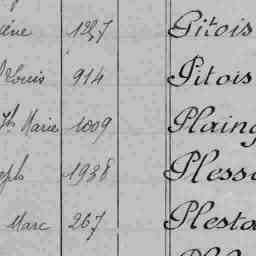 1237 Pitois
Louis 914 Pitois
Jh Marie 1009 Plaing
eph 1938 Plesso
Marc 267 Plesta